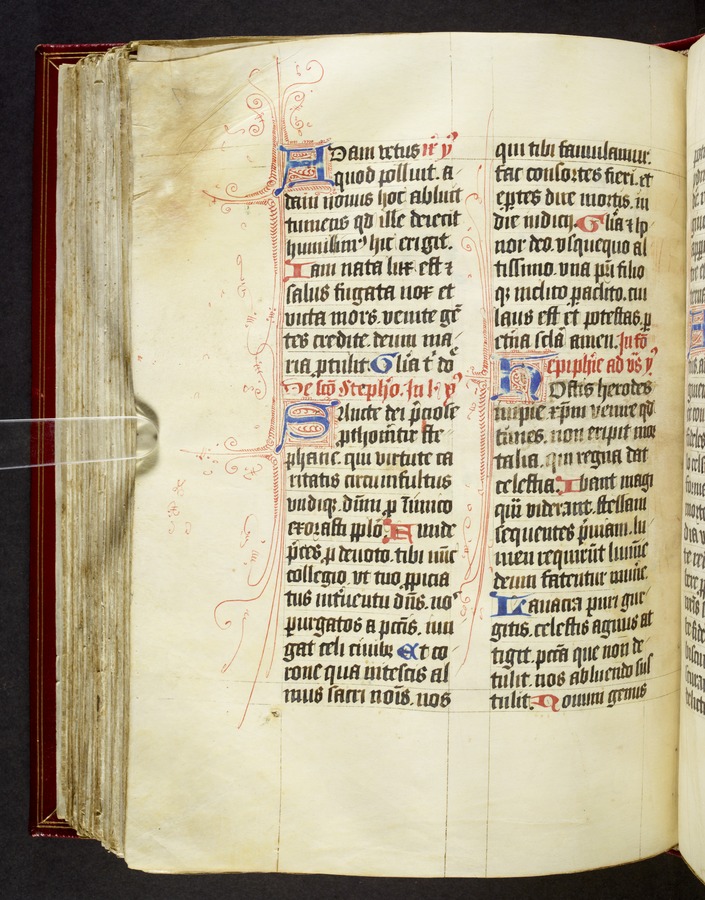 Adam vetus in̄ y̾
quod polluit. a
dam nouus hoc abluit
tumens qd ille deiecit
humilim⁹ hic erigit.
Iam nata lux est ⁊
salus fugata nox et
victa mors. venite gē
tes credite. deum ma
ria ꝓtulit. Glia t̾ dō
De scō Stepho. In
dei p̄ciose
ꝓthomr̄tir ste
phane. qui virtute ca
ritatis circumfultus
vndiqꝫ. dūm ꝓ inimico
exorasti pplō. Funde
p̄ces ꝓ deuoto. tibi nūc
collegio. vt tuo ꝓpicia
tus int̾uentu dn̄s. no⁹
purgatos a pctīs. iun
gat celi ciuibꝫ Et co
rone qua nitescis al
mus sacri noīs. nos
qui tibi famulamur.
fac consortes fieri. et
exp̄tes dire mortis. in
die iudicij. Glia ⁊ hō
nor deo. vsquequo al
tissimo. vna pr̄i filio
qꝫ inclito paclito. cui
laus est et potestas. ꝑ
et̾na sclā amen. In fō
epiphīe ad v̄s y̾
Hostis herodes
impie xp̄m venire qd
times. non eripit mor
talia. qui regna dat
celestia. Ibant magi
quā viderant. stellam
sequentes p̄uiam. lu
men requirūt lumīe
deum fatentur mune.
Lauacra puri gur
gitis. celestis agnus at
tigit. pctā que non de
tulit. nos abluendo sus
tulit. Nouum genus